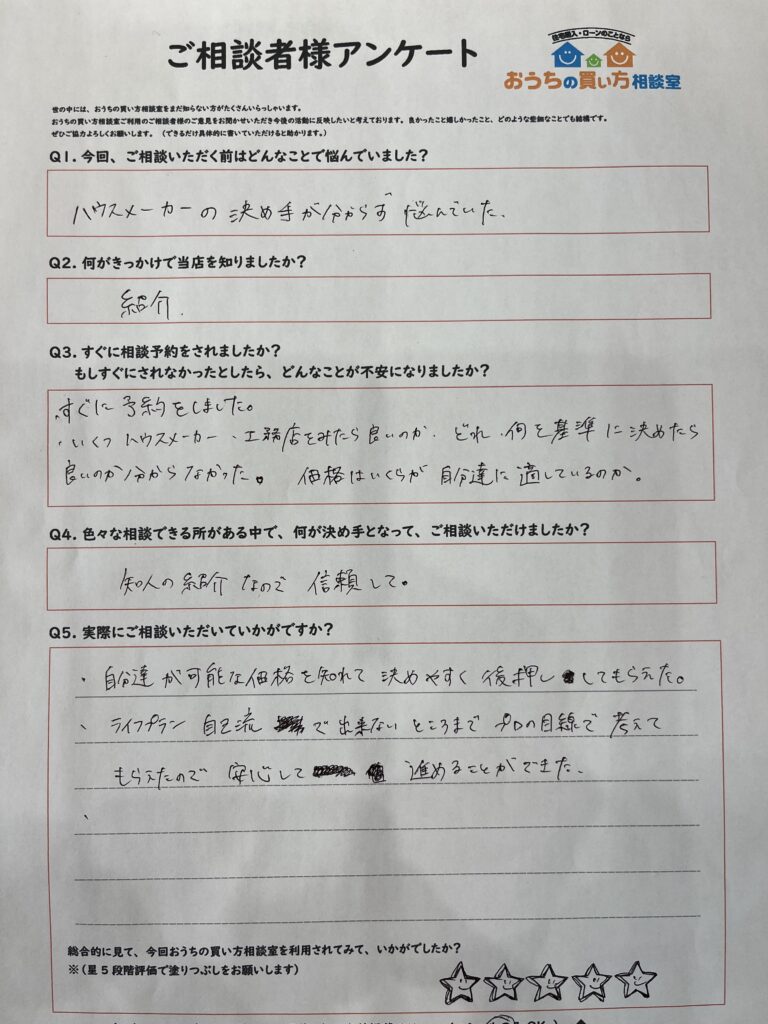 ご相談者様アンケート
住宅購入・ローンのことなら
おうちの買い方相談室
世の中には、おうちの買い方相談室をまだ知らない方がたくさんいらっしゃいます。
おうちの買い方相談室ご利用のご相談者様のご意見をお聞かせいただき今後の活動に反映したいと考えております。良かったこと嬉しかったこと、どのような些細なことでも結構です。
ぜひご協力よろしくお願いします。(できるだけ具体的に書いていただけると助かります。)
Q1. 今回、ご相談いただく前はどんなことで悩んでいました?
ハウスメーカーの決め手が分からず悩んでいた.
Q2. 何がきっかけで当店を知りましたか?
紹介.
Q3. すぐに相談予約をされましたか?
もしすぐにされなかったとしたら、どんなことが不安になりましたか?
すぐに予約をしました。
・いくつハウスメーカー、工務店をみたら良いのか. どれ、何を基準に決めたら
良いのか分からなかった。 価格はいくらが自分達に適しているのか。
Q4. 色々な相談できる所がある中で、何が決め手となって、ご相談いただけましたか?
知人の紹介なので 信頼して。
Q5. 実際にご相談いただいていかがですか?
・自分達が可能な価格を知れて決めやすく後押ししてもらえた。
・ライフプラン 自己流で出来ないところまでプロの目線で考えて
もらえたので 安心して 進めることができた.
、
総合的に見て、今回おうちの買い方相談室を利用されてみて、いかがでしたか?
※(星5段階評価で塗りつぶしをお願いします)